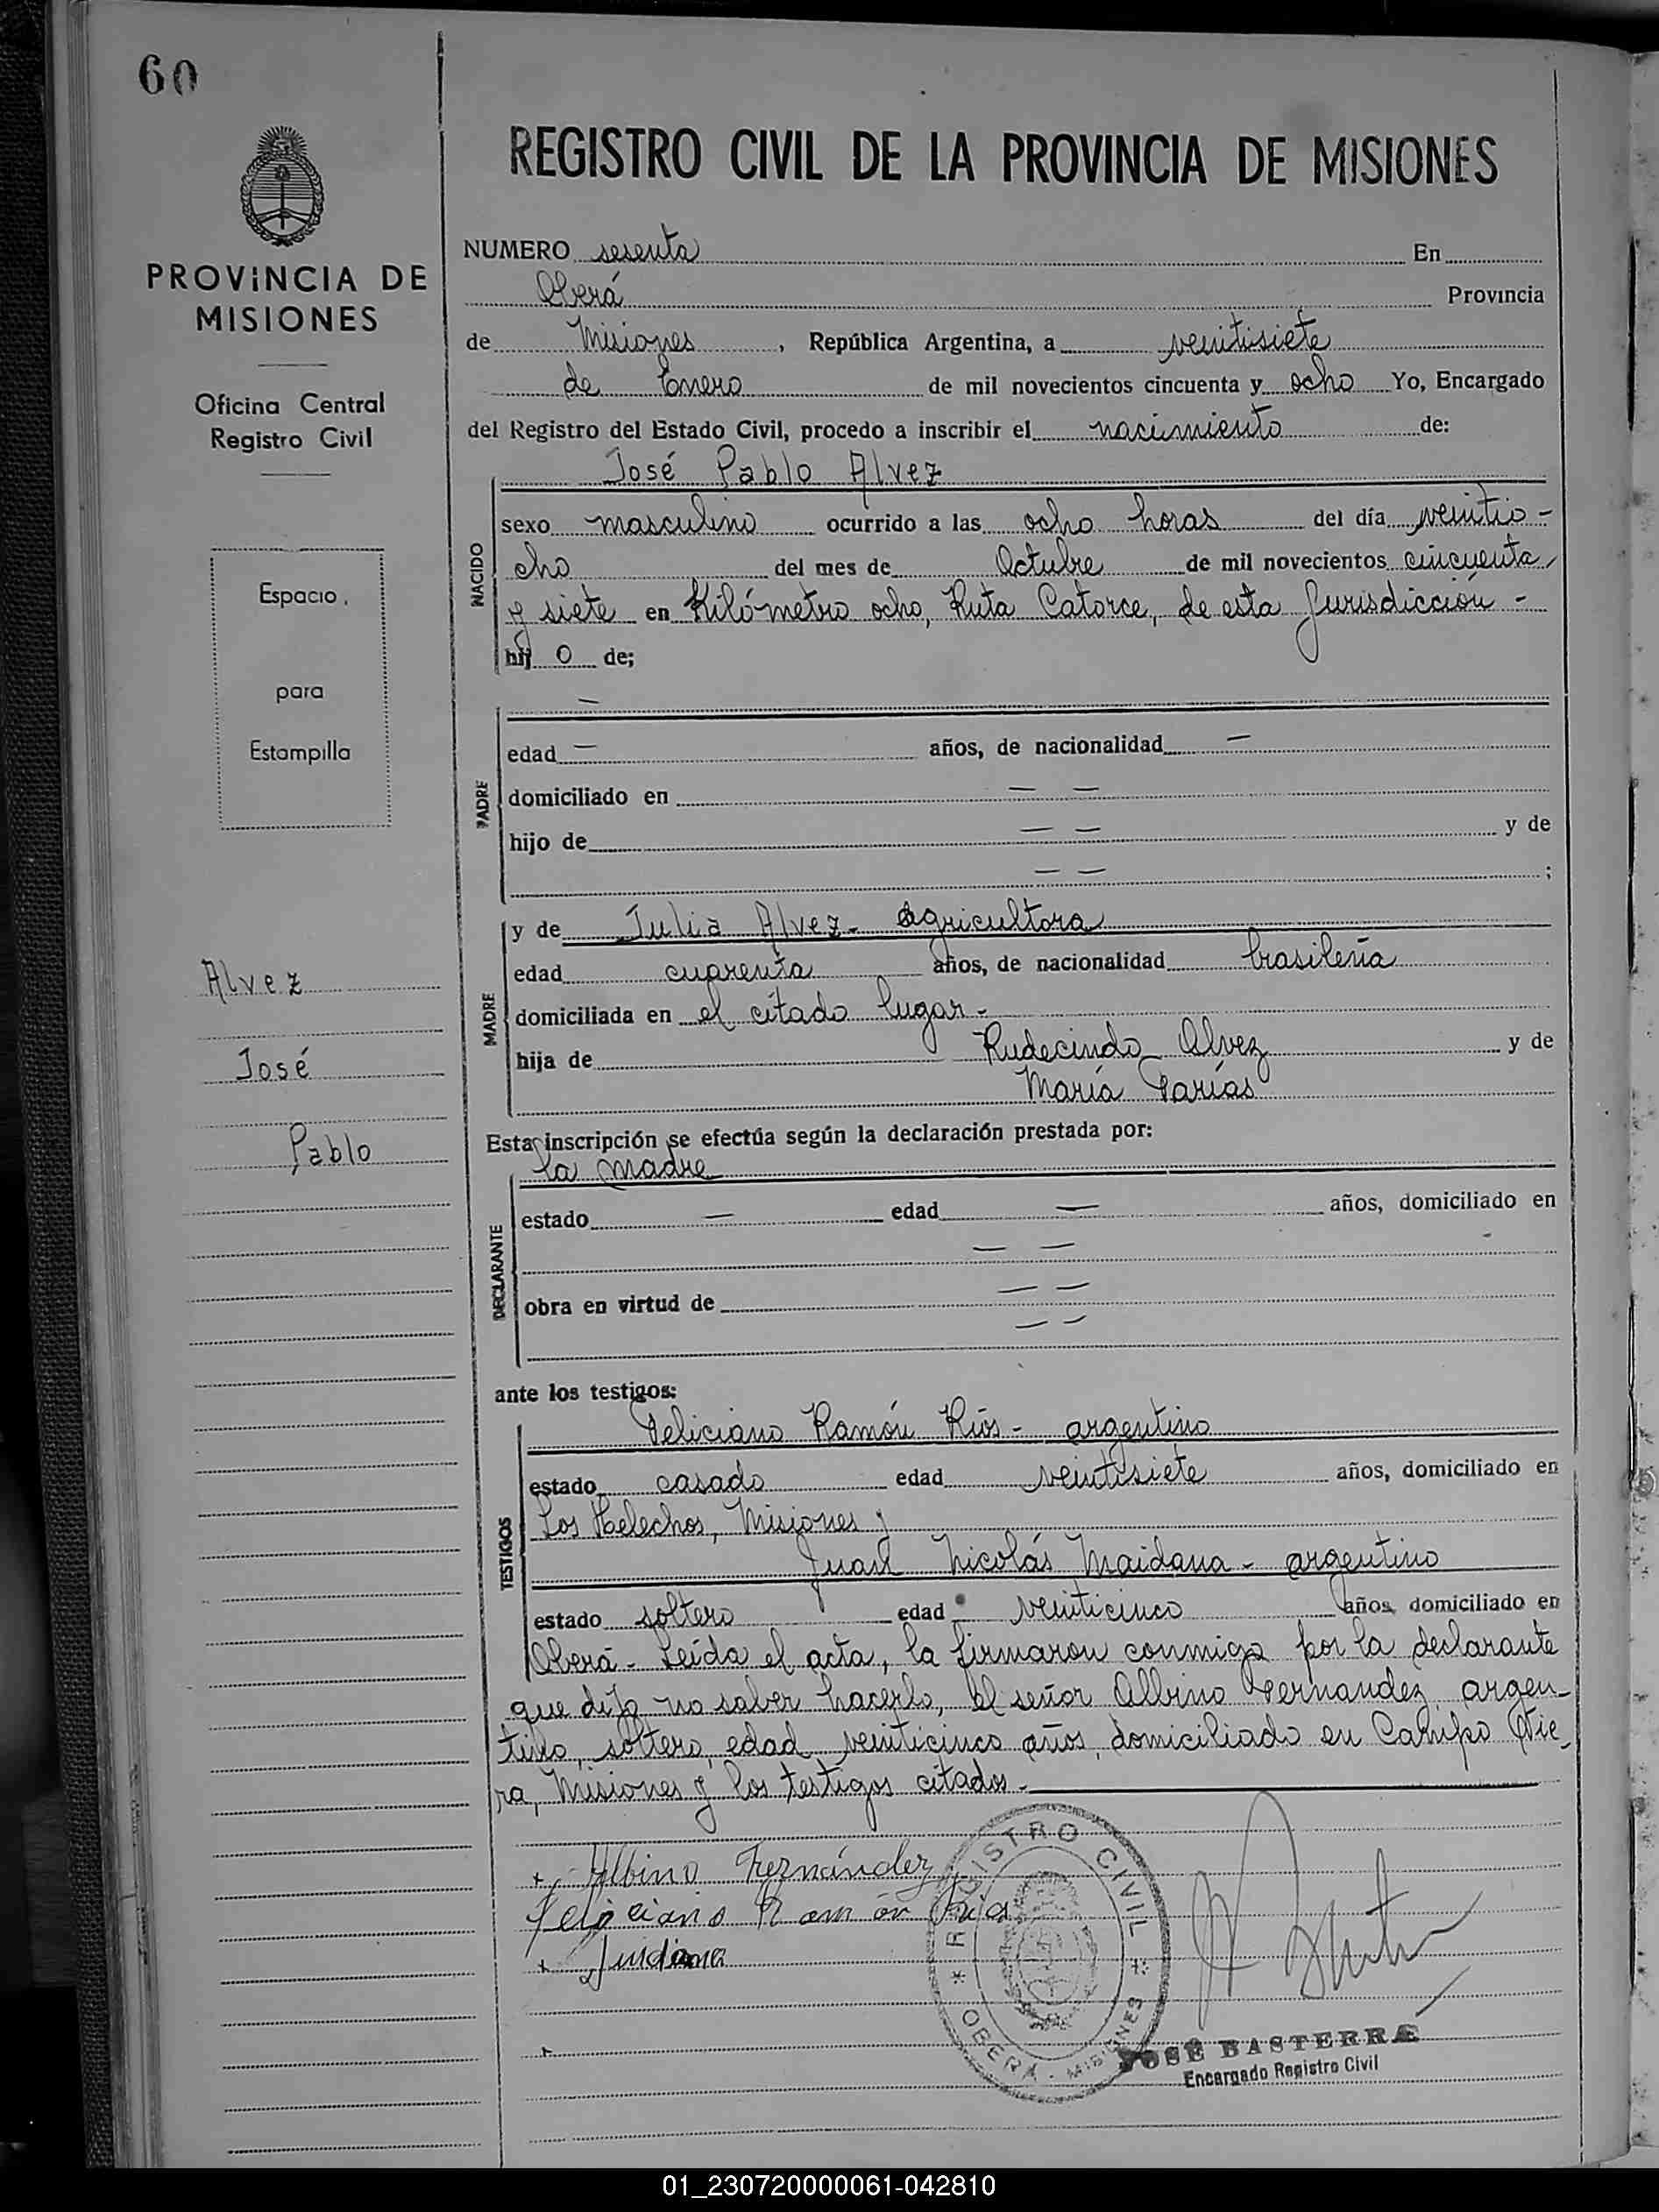 60
PROVINCIA DE
MISIONES
Oficina Central
Registro Civil
Espacio
para
Estampilla
Alvez
José
Pablo
REGISTRO CIVIL DE LA PROVINCIA DE MISIONES
NUMERO sesenta En
Oberá Provincia
de Misiones, República Argentina, a veintisiete
de Enero de mil novecientos cincuenta y ocho Yo, Encargado
del Registro del Estado Civil, procedo a inscribir el nacimiento de:
José Pablo Alvez
NACIDO
sexo masculino ocurrido a las ocho horas del día veintio-
cho del mes de Octubre de mil novecientos cincuenta
y siete en Kilómetro ocho, Ruta Catorce, de esta Jurisdicción -
hij o de;
PADRE
—
edad — años, de nacionalidad —
domiciliado en — —
hijo de — — y de
— — ;
MADRE
y de Julia Alvez - agricultora
edad cuarenta años, de nacionalidad brasileña
domiciliada en el citado lugar -
hija de Rudecindo Alvez y de
María Farías
Esta inscripción se efectúa según la declaración prestada por:
DECLARANTE
la madre
estado — edad — años, domiciliado en
— —
obra en virtud de — —
— —
ante los testigos:
TESTIGOS
Feliciano Ramón Ríos - argentino
estado casado edad veintisiete años, domiciliado en
Los Helechos, Misiones y
Juan Nicolás Maidana - argentino
estado soltero edad veinticinco años, domiciliado en
Oberá - Leída el acta, la firmaron conmigo por la declarante
que dijo no saber hacerlo, el señor Albino Fernandez, argen-
tino, soltero, edad veinticinco años, domiciliado en Campo Vie-
ra, Misiones y los testigos citados -
Albino Fernández
Feliciano Ramón Ríos
* REGISTRO CIVIL *
OBERÁ - MISIONES
JOSÉ BASTERRA
Encargado Registro Civil
01_230720000061-042810